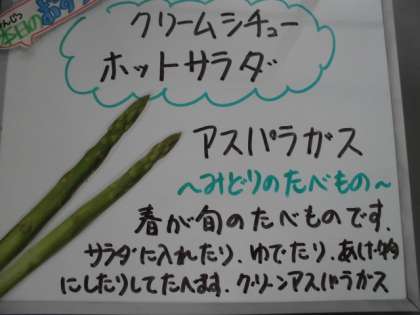 本日の
クリームシチュー
ホットサラダ
アスパラガス
〜みどりのたべもの〜
春が旬のたべものです。
サラダに入れたり、ゆでたり、あげ物
にしたりしてたべます。グリーンアスパラガス